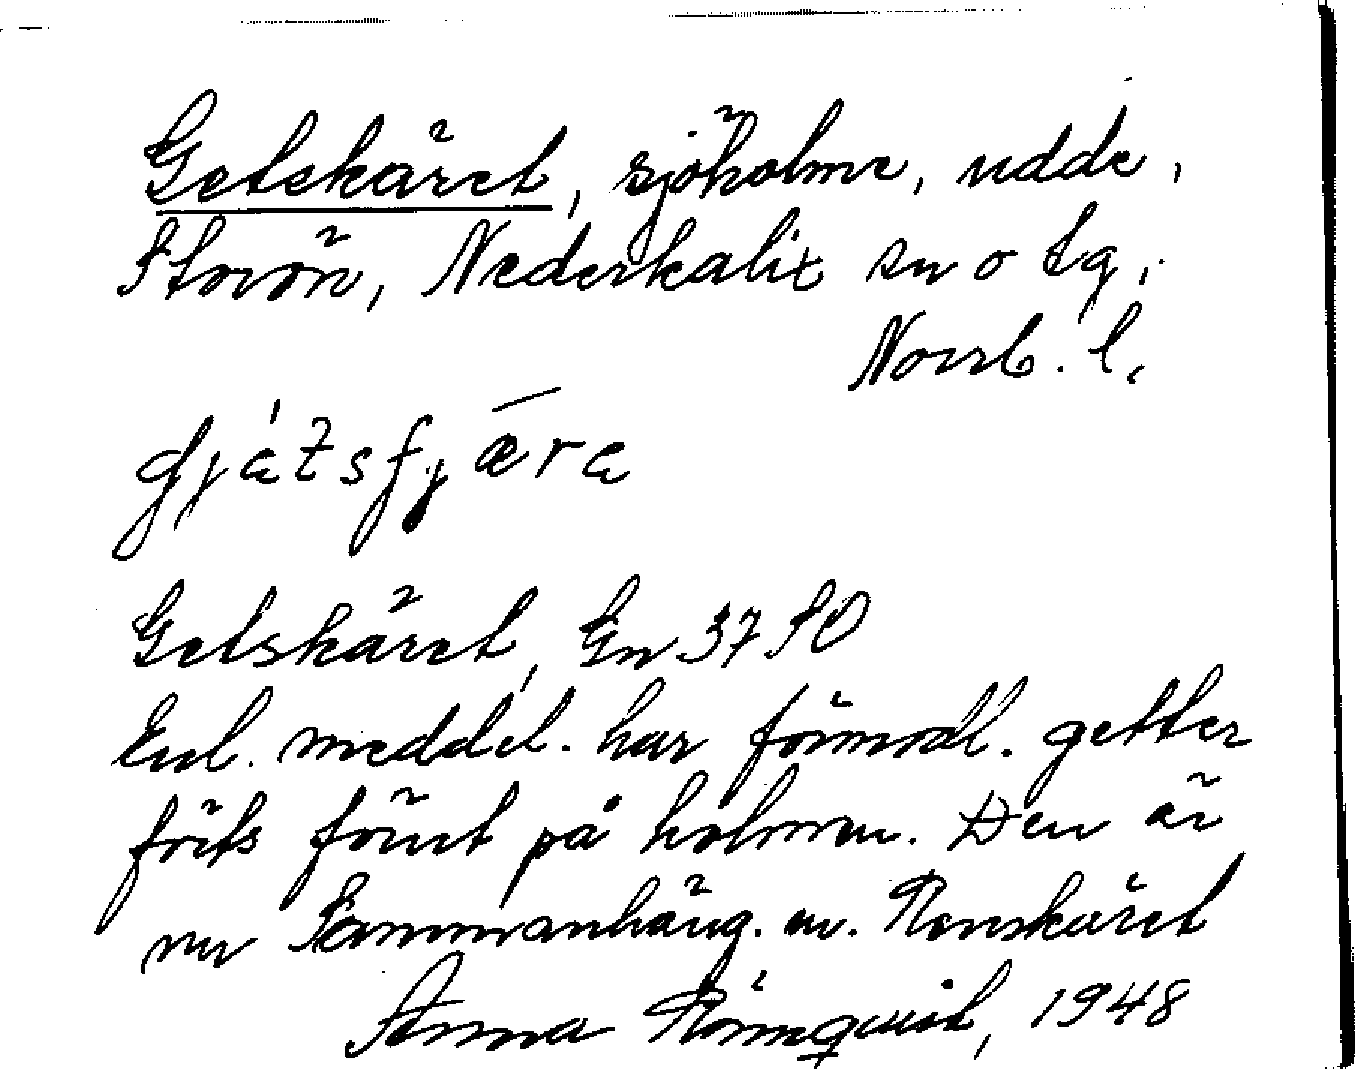 Getskäret, sjöholme, udde,
Storön, Nederkalix sn o tg,
Norrb. l.
gjátsfjæ̅ra
Getskäret, Gn 37 SO
Enl. meddel. har förmodl. getter
förts först på holmen. Den är
nu Sammanhäng. m. Renskäret
Anna Rönnquist, 1948